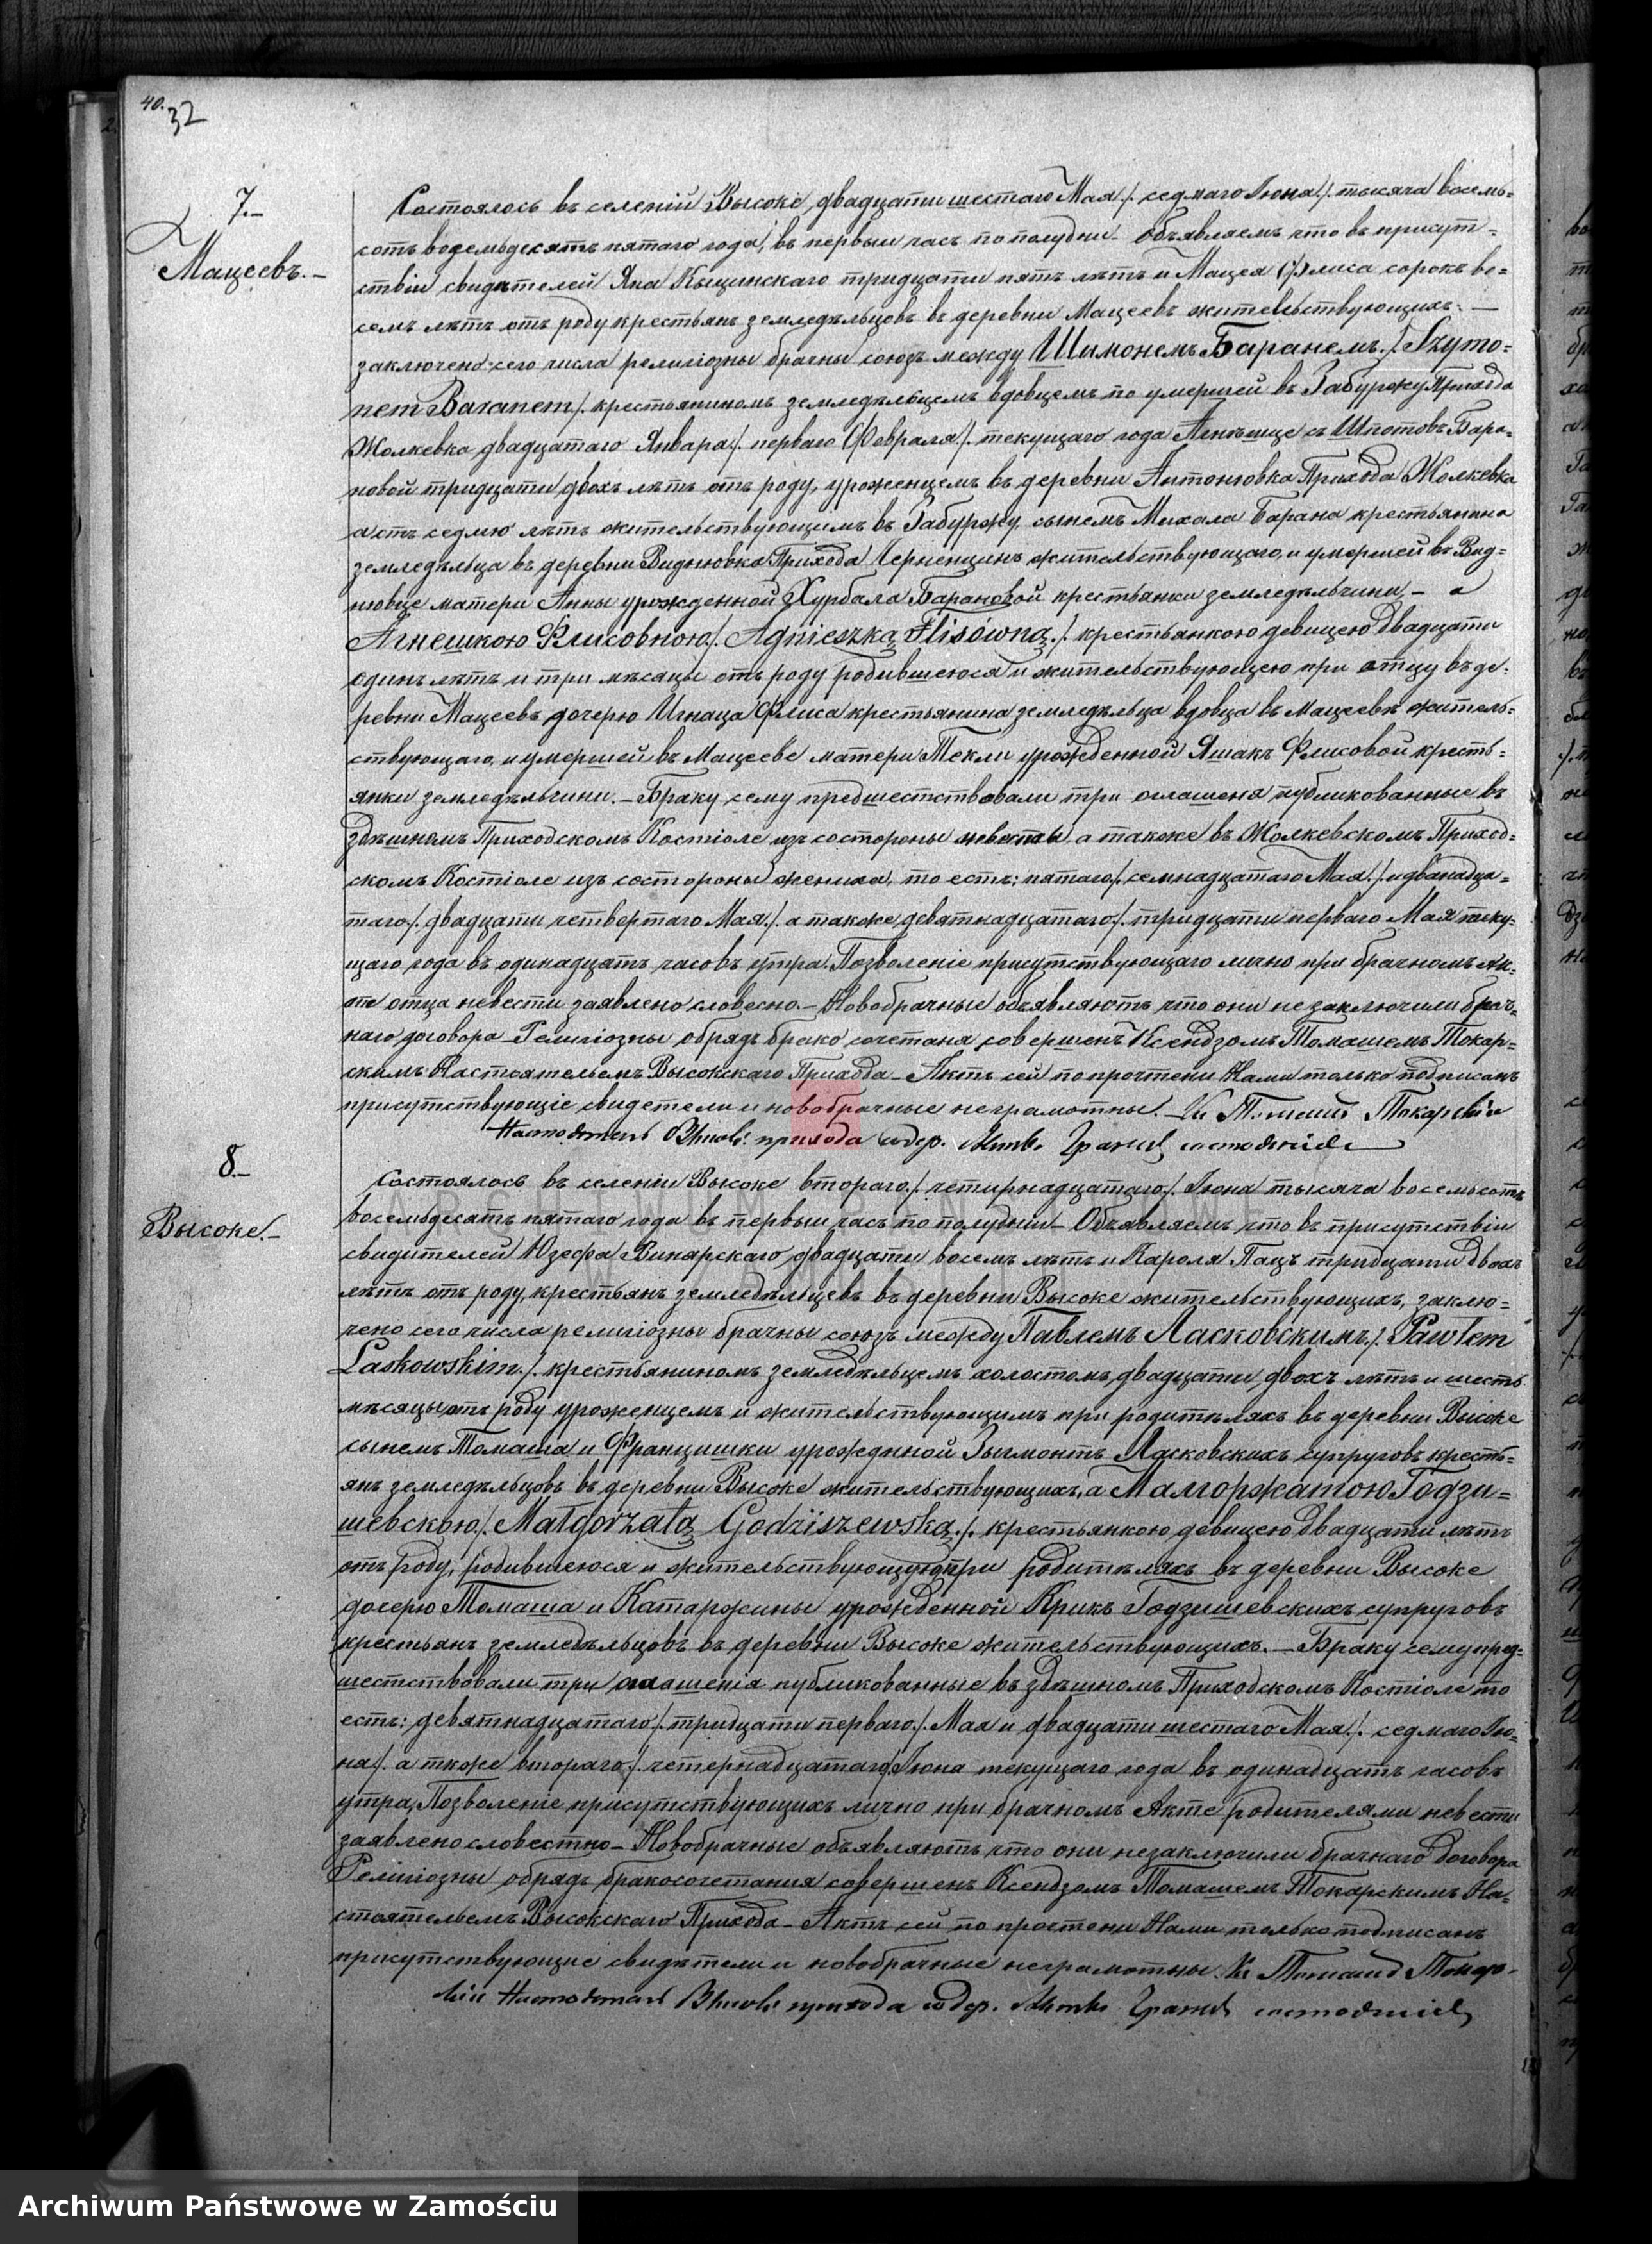 40.
32
7.-
Мацеевъ.-
Состоялось въ селеніи Высоке, двадцати шестаго Мая /. седмаго Іюна ./. тысяча восемь=
сотъ восемьдесятъ пятаго года, въ первый часъ по полудни - Объявляемъ что въ присут=
ствіи свидѣтелей Яна Кыцинскаго тридцати пять лѣтъ и Мацея Флиса сорокъ во=
семъ лѣтъ отъ роду крестьянъ земледѣльцовъ въ деревни Мацеевъ жительствующихъ. —
заключено сего числа религіозны брачны союзъ между Шимонемъ Баранемъ ./. Szymo=
nem Baranem /. крестьяниномъ земледѣльцемъ вдовцемъ по умершей въ Забуржу Прихода
Жолкевка двадцатаго Января /. перваго Февраля /. текущаго года Агнѣшце съ Шпотовъ Бара=
новой тридцати двохъ лѣтъ отъ роду, уроженцемъ въ деревни Антонювка Прихода Жолкевка
а отъ седмю лѣтъ жительствующимъ въ Забуржу сынемъ Михала Барана крестьянина
земледѣльца въ деревни Виднювка Прихода Черненцинъ жительствующаго, и умершей въ Вид=
нювце матери Анны урожденной Хурбала Барановой крестьянки земледѣльчини, - а
Агнешкою Флисовною /. Agnieszką Flisówną ./. крестьянкою девицею двадцати
одинъ лѣтъ и три мѣсяцы отъ роду родившеюся и жительствующею при отцу въ де=
ревни Мацеевъ дочерю Игнаца Флиса крестьянина земледѣльца вдовца въ Мацеевѣ житель=
ствующаго, и умершей въ Мацееве матери Текли урожденной Яшакъ Флисовой кресть=
янки земледѣльчини. - Браку сему предшествовали три оглашеня публикованные въ
здѣшномъ Приходскомъ Костіоле изъ состороны невесты, а также въ Жолкевскомъ Приход=
скомъ Костіоле изъ состороны жениха, то есть: пятаго /. семнадцатаго Мая /. и дванадца=
таго /. двадцати четвертаго Мая /. а также девятнадцатаго /. тридцати перваго Мая теку=
щаго года въ одинадцать часовъ утра. Позволеніе присутствующаго лично при брачномъ Ак=
те отца невести заявлено словесно. - Новобрачные объявляютъ что они не заключили брач=
наго договора - Религіозны обрядъ брако сочетаня совершенъ Ксендзомъ Томашемъ Токар=
скимъ Настоятельемъ Высокскаго Прихода - Актъ сей по прочтени Нами только подписанъ
присутствующіе свидетели и новобрачные неграмотны. - Кс Томашъ Токарскій
Настоятель Высок: прихода содер. Акты Гражд состоянія
8.-
Высоке.-
Состоялось въ селеніи Высоке втораго /. четирнадцатаго /. Іюна тысяча восемьсотъ
восемьдесятъ пятаго года въ первый часъ по полудни - Объявляемъ что въ присутствіи
свидителей Юзефа Винярскаго двадцати восемъ лѣтъ и Кароля Пацъ тридцати двохъ
лѣтъ отъ роду, крестьянъ земледѣльцевъ въ деревни Высоке жительствующихъ, заклю=
чено сего числа религіозны брачны союзъ между Павлемъ Ласковскимъ /. Pawłem
Laskowskim /. крестьяниномъ земледѣльцемъ холостомъ, двадцати двохъ лѣтъ и шесть
мѣсяцы отъ роду уроженцемъ и жительствующимъ при родитѣляхъ въ деревни Высоке
сынемъ Томаша и Францишки урожденной Зыгмонтъ Ласковскихъ супруговъ кресть=
янъ земледѣльцовъ въ деревни Высоке жительствующихъ, а Малгоржатою Годзи=
шевскою /. Małgorzatą Godziszewską ./. крестьянкою девицею двадцати лѣтъ
отъ роду, родившеюся и жительствующую при родитѣляхъ въ деревни Высоке
дочерю Томаша и Катаржины урожденной Крикъ Годзишевскихъ супруговъ
крестьянъ земледѣльцовъ въ деревни Высоке жительствующихъ. - Браку сему пред=
шествовали три оглашенія публикованные въ здѣшномъ Приходскомъ Костіоле то
есть: девятнадцатаго /. тридцати перваго /. Мая и двадцати шестаго Мая /. седмаго Ію=
на /. а ткоже втораго /. четернадцатаго /. Іюна текущаго года въ одинадцать часовъ
утра, Позволеніе присутствующихъ лично при брачномъ Акте родителями невести
заявлено словестно - Новобрачные объявляютъ что они незаключили брачнаго договора
Религіозны обрядъ бракосочетания совершенъ Ксендзомъ Томашемъ Токарскимъ На=
стоятельемъ Высокскаго Прихода - Актъ сей по прочтени Нами только подписанъ
присутствующие свидѣтели и новобрачные неграмотны. Кс Томашъ Токар=
скій Настоятель Высок: прихода содер. Акты Гражд состоянія
ARCHIWUM PAŃSTWOWE
W ZAMOŚCIU
Archiwum Państwowe w Zamościu